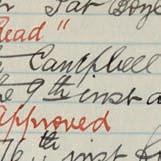 Pat Boyle
Read"
Campbell
the 9th inst a
Approved
16th inst